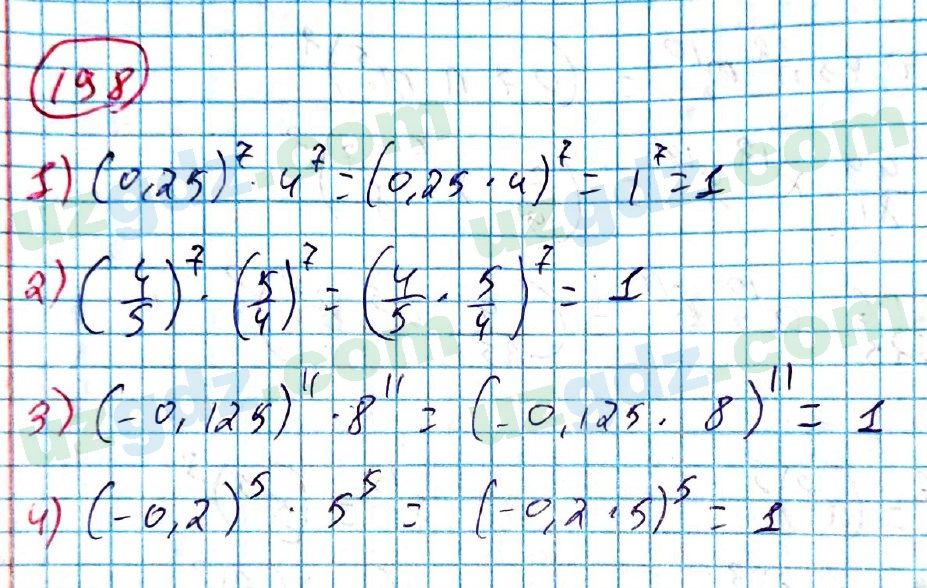 198
1) (0,25)⁷ · 4⁷ = (0,25 · 4)⁷ = 1⁷ = 1
2) (4/5)⁷ · (5/4)⁷ = (4/5 · 5/4)⁷ = 1
3) (-0,125)¹¹ · 8¹¹ = (-0,125 · 8)¹¹ = 1
4) (-0,2)⁵ · 5⁵ = (-0,2 · 5)⁵ = 1
uzgdz.com
uzgdz.com
uzgdz.com
uzgdz.com